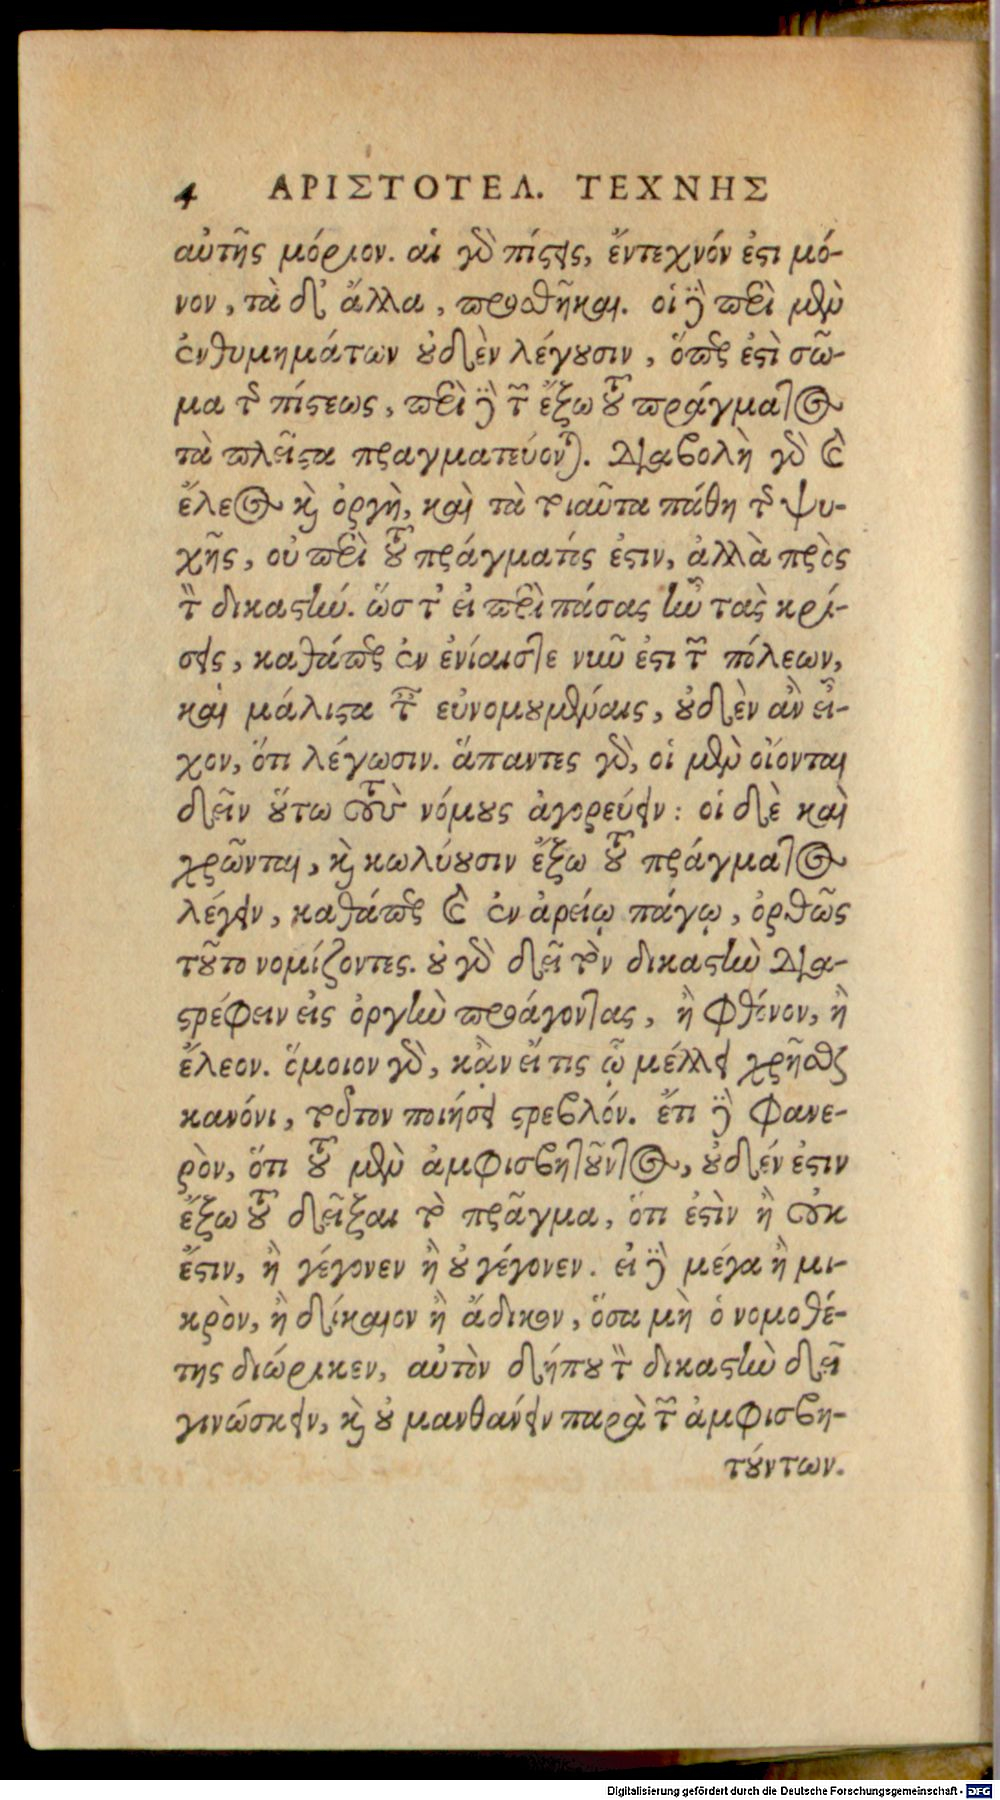 4 ΑΡΙΣΤΟΤΕΛ. ΤΕΧΝΗΣ
αὐτῆς μόριον. αἱ γὰρ πίστεις, ἔντεχνόν ἐστι μό-
νον, τὰ δ' ἄλλα, προσθῆκαι. οἱ δὲ περὶ μὲν
ἐνθυμημάτων οὐδὲν λέγουσιν, ὅπερ ἐστὶ σῶ-
μα τῆς πίστεως, περὶ δὲ τῶν ἔξω τοῦ πράγματος
τὰ πλεῖστα πραγματεύονται. Διαβολὴ γὰρ καὶ
ἔλεος καὶ ὀργὴ, καὶ τὰ τοιαῦτα πάθη τῆς ψυ-
χῆς, οὐ περὶ τοῦ πράγματός ἐστιν, ἀλλὰ πρὸς
τὸν δικαστήν. ὥστ' εἰ περὶ πάσας ἦν τὰς κρί-
σεις, καθάπερ ἐν ἐνίαις τε νῦν ἐστι τῶν πόλεων,
καὶ μάλιστα ταῖς εὐνομουμέναις, οὐδὲν ἂν εἶ-
χον, ὅτι λέγωσιν. ἅπαντες γὰρ, οἱ μὲν οἴονται
δεῖν οὕτω τοὺς νόμους ἀγορεύειν: οἱ δὲ καὶ
χρῶνται, καὶ κωλύουσιν ἔξω τοῦ πράγματος
λέγειν, καθάπερ καὶ ἐν ἀρείῳ πάγῳ, ὀρθῶς
τοῦτο νομίζοντες. οὐ γὰρ δεῖ τὸν δικαστὴν δια-
στρέφειν εἰς ὀργὴν προάγοντας, ἢ φθόνον, ἢ
ἔλεον. ὅμοιον γὰρ, κἂν εἴ τις ᾧ μέλλει χρῆσθαι
κανόνι, τοῦτον ποιήσει στρεβλόν. ἔτι δὲ φανε-
ρὸν, ὅτι τοῦ μὲν ἀμφισβητοῦντος, οὐδέν ἐστιν
ἔξω τοῦ δεῖξαι τὸ πρᾶγμα, ὅτι ἐστὶν ἢ οὐκ
ἔστιν, ἢ γέγονεν ἢ οὐ γέγονεν. εἰ δὲ μέγα ἢ μι-
κρὸν, ἢ δίκαιον ἢ ἄδικον, ὅσα μὴ ὁ νομοθέ-
της διώρικεν, αὐτὸν δήπου τὸν δικαστὴν δεῖ
γινώσκειν, καὶ οὐ μανθάνειν παρὰ τῶν ἀμφισβη-
τούντων.
Digitalisierung gefördert durch die Deutsche Forschungsgemeinschaft - DFG